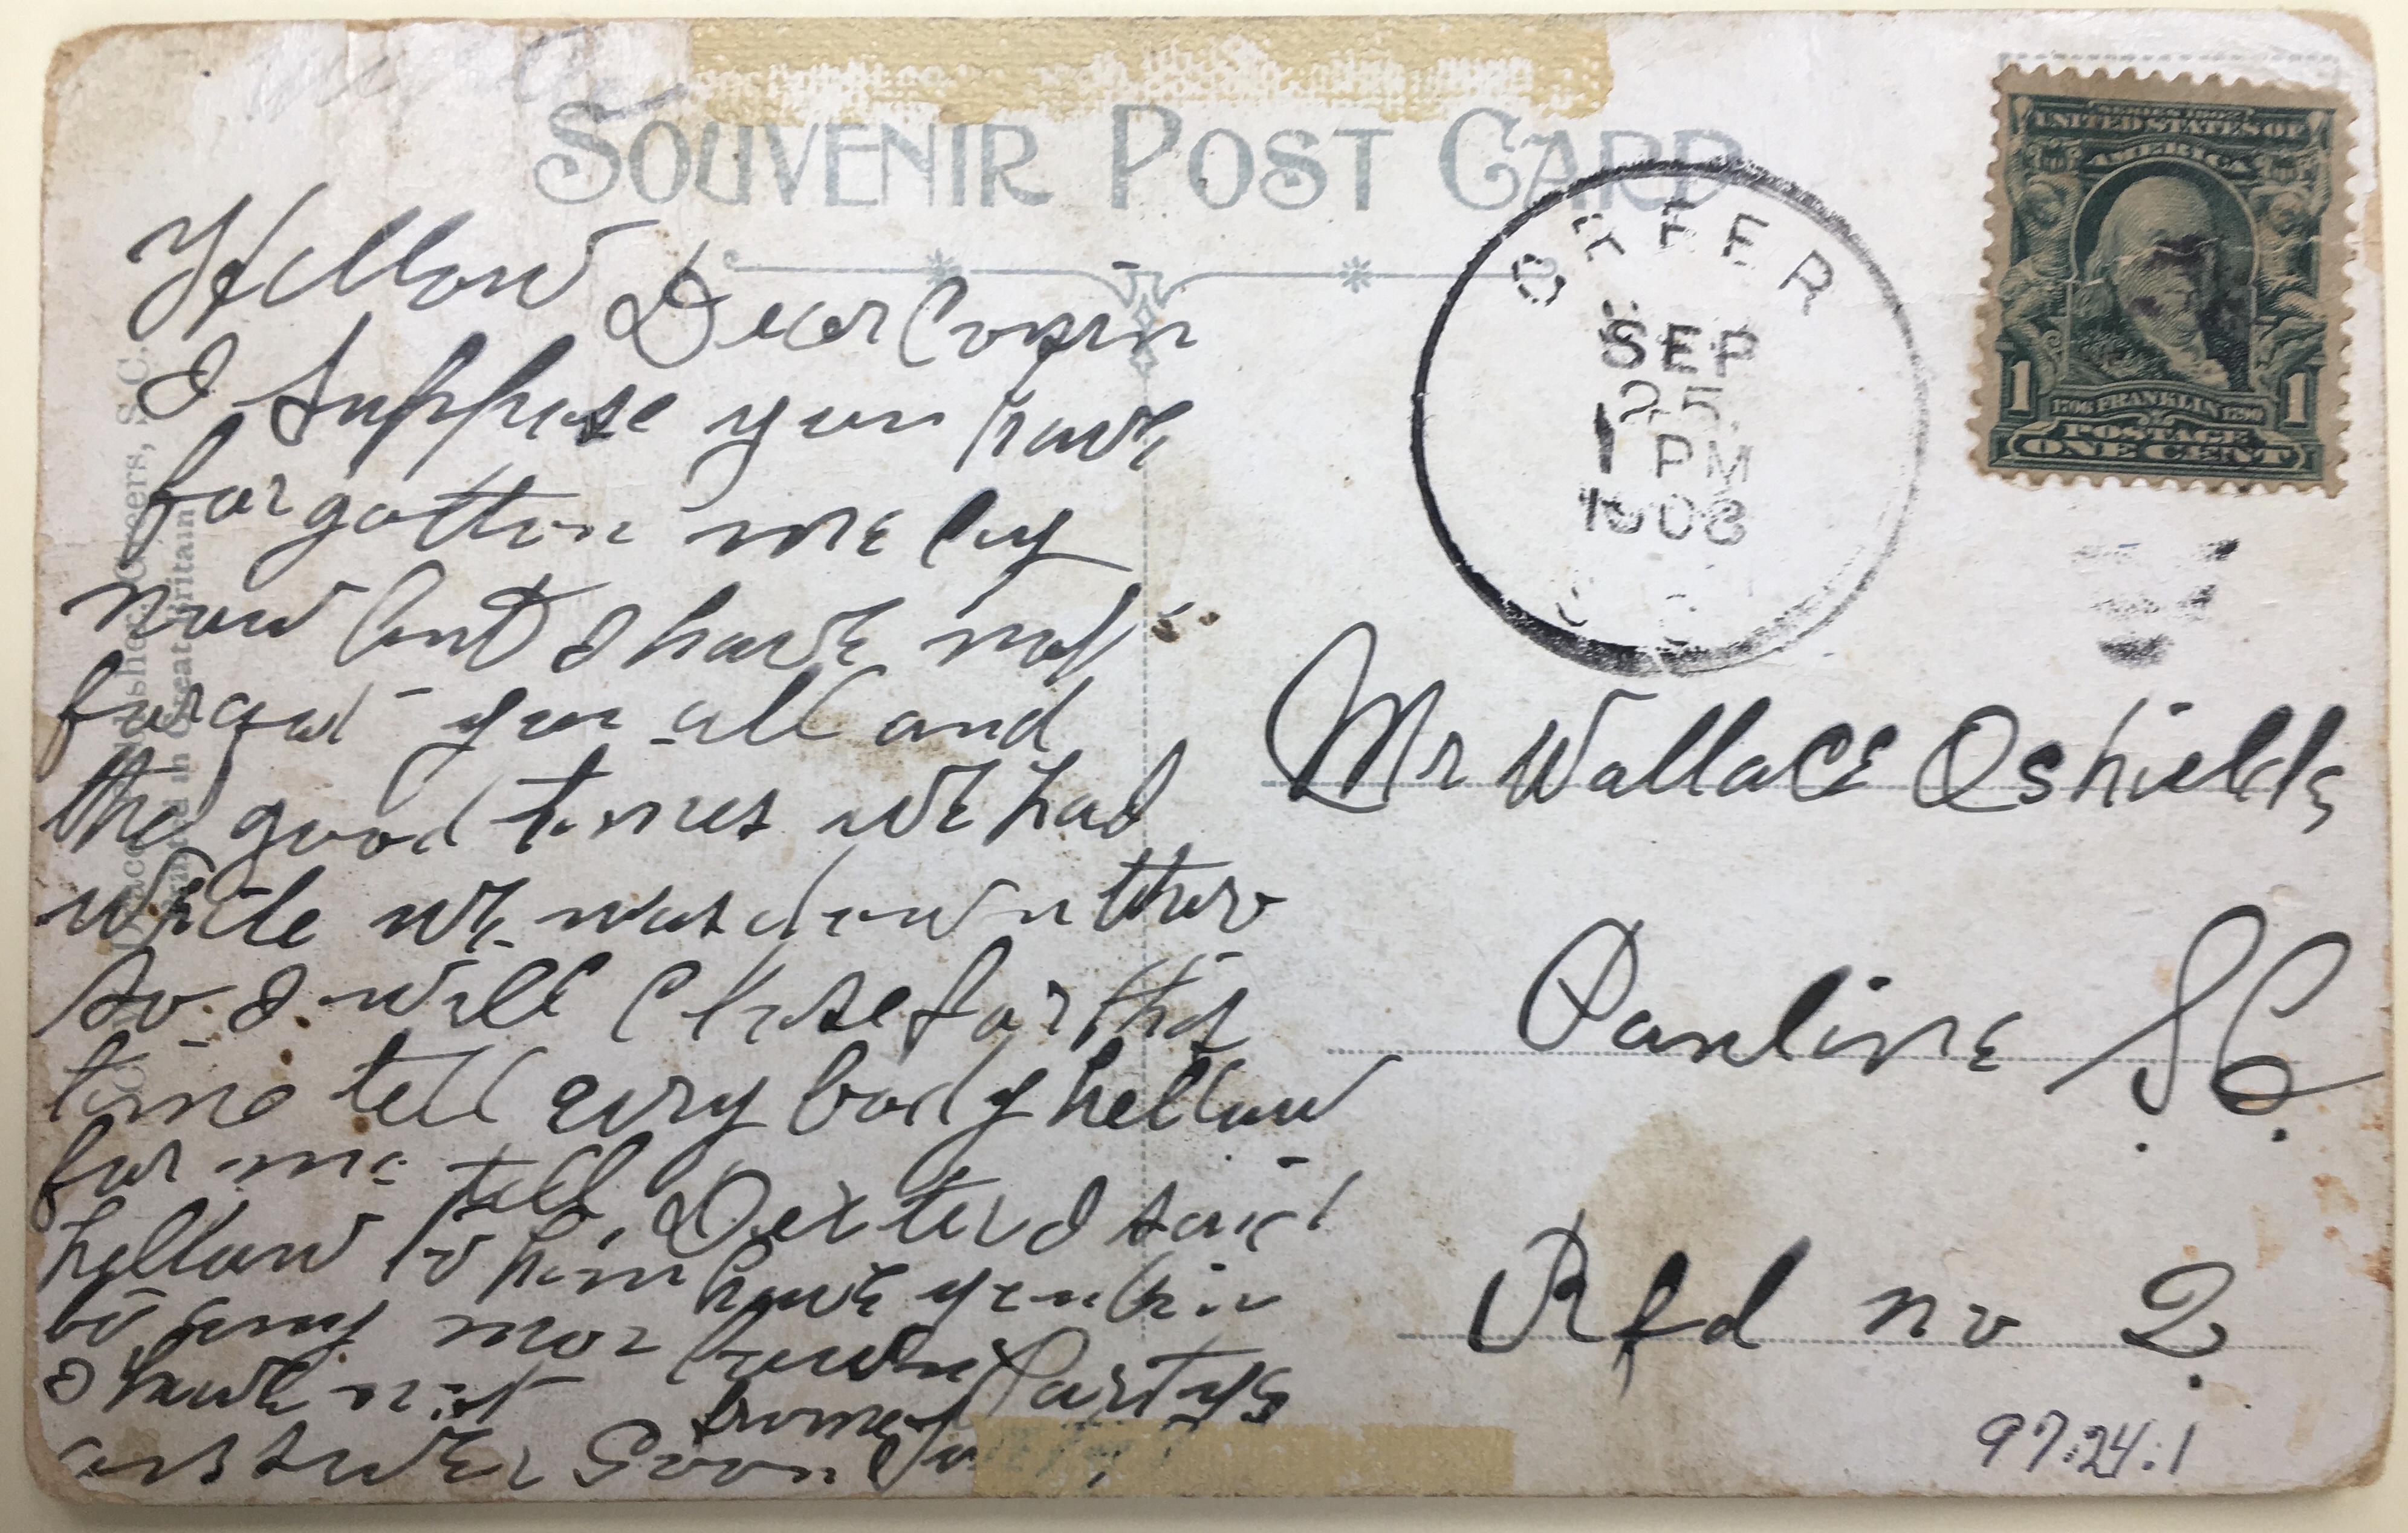 SOUVENIR POST CARD
GREER
SEP
25
1 PM
1908
SERIES 1902
UNITED STATES OF
AMERICA
1706 FRANKLIN 1790
1 1
POSTAGE
ONE CENT
Hellow Dear Cousin
I suppose you have
forgotten me by
now but I have not
forgot you all and
the good times we had
while we was down there
so I will close for this
time tell evry body hellow
for me tell Dexter I said
hellow to him have you bin
to any mor partys
I have not
answer Soon from
Mr Wallace Oshields
Pauline S.C.
Rfd no 2.
97.24.1
Greers, S.C.
in Great Britain